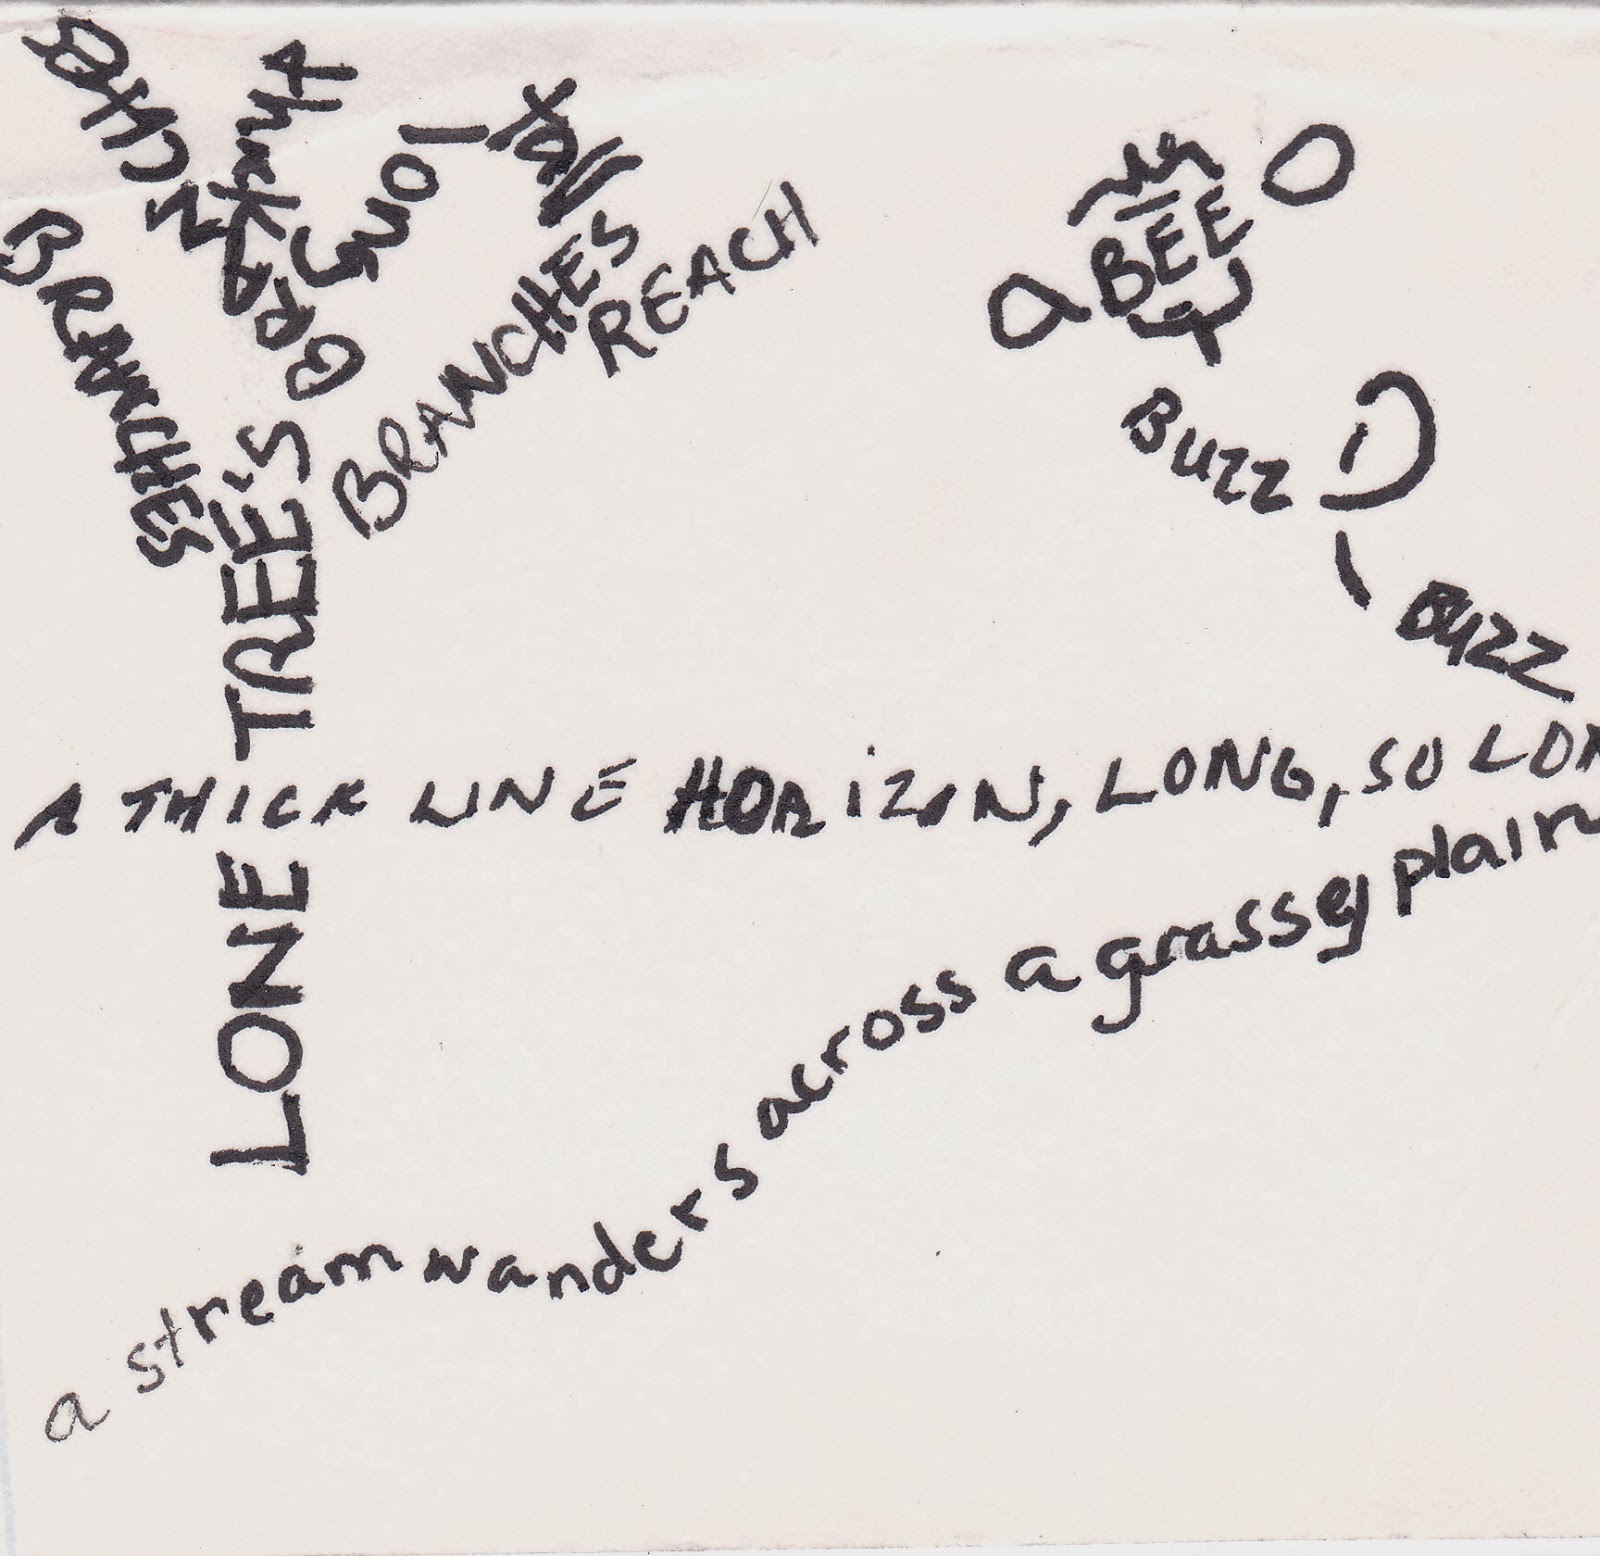 BRANCHES
BRANCHES
long
tall
BRANCHES
REACH
LONE TREE'S
my
BEE
BUZZ
BUZZ
A THICK LINE HORIZON, LONG, SO LON
a stream wanders across a grassy plain